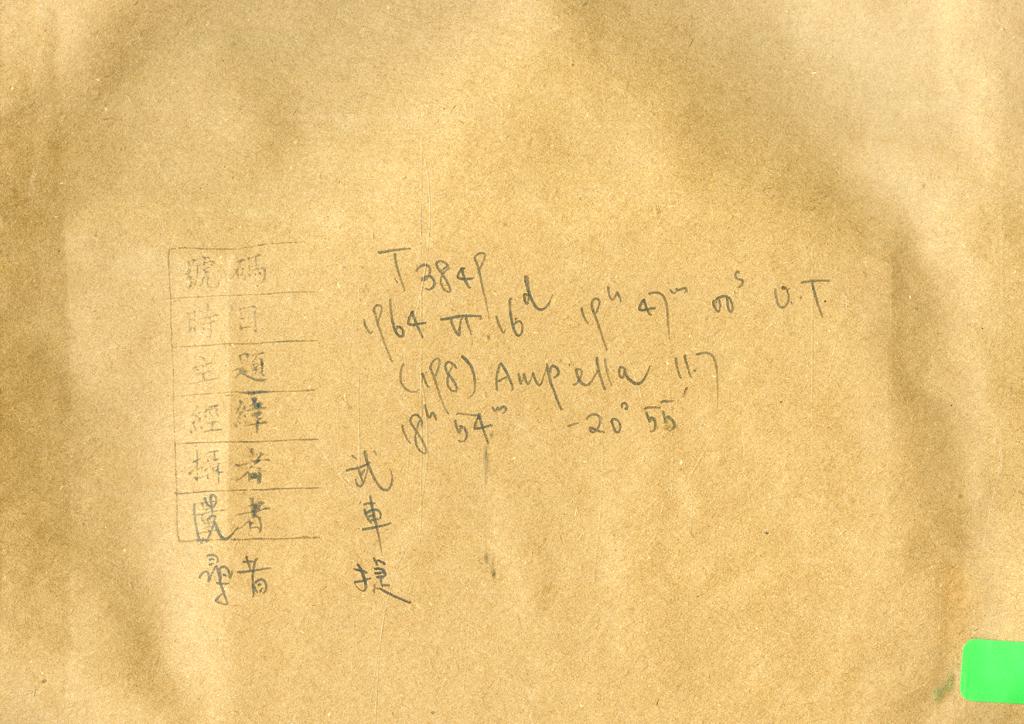 號碼 T 3849
時日 1964 VI 16d 19h 47m 00s U.T.
主題 (198) Ampella 11.7
經緯 18h 54m -20° 55'
攝者 武
者 車
尋者 捷